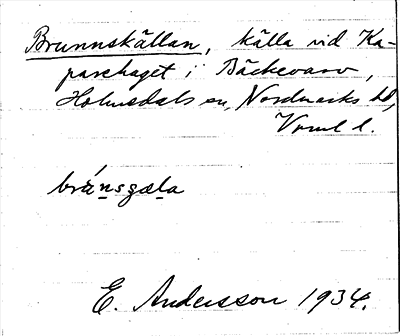 Brunnskällan, källa vid Ka-
parehaget i Bäckevarv,
Holmedals sn, Nordmarks hd,
Vrml l.
brä́nsgæla
E. Andersson 1934.